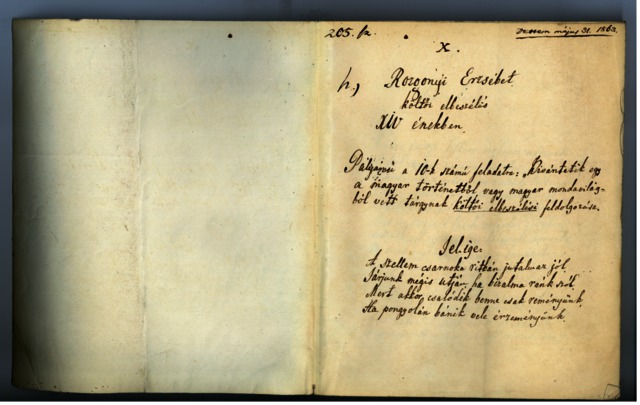 205. sz.
Veszem május 31. 1863.
X.
h.) Rozgonyi Erzsébet
költői elbeszélés
XIV énekben.
Pályamű a 10-k számú feladatra: „Kivántatik egy
a magyar történetből vagy magyar mondavilág-
ból vett tárgynak költői elbeszélési feldolgozása.
Jelige:
A szellem csarnoka ritkán jutalmaz jól
Járjunk mégis utján, ha bizalma ránk szól.
Mert akkor csalódik benne csak reményünk,
Ha pongyolán bánik vele érzeményünk.